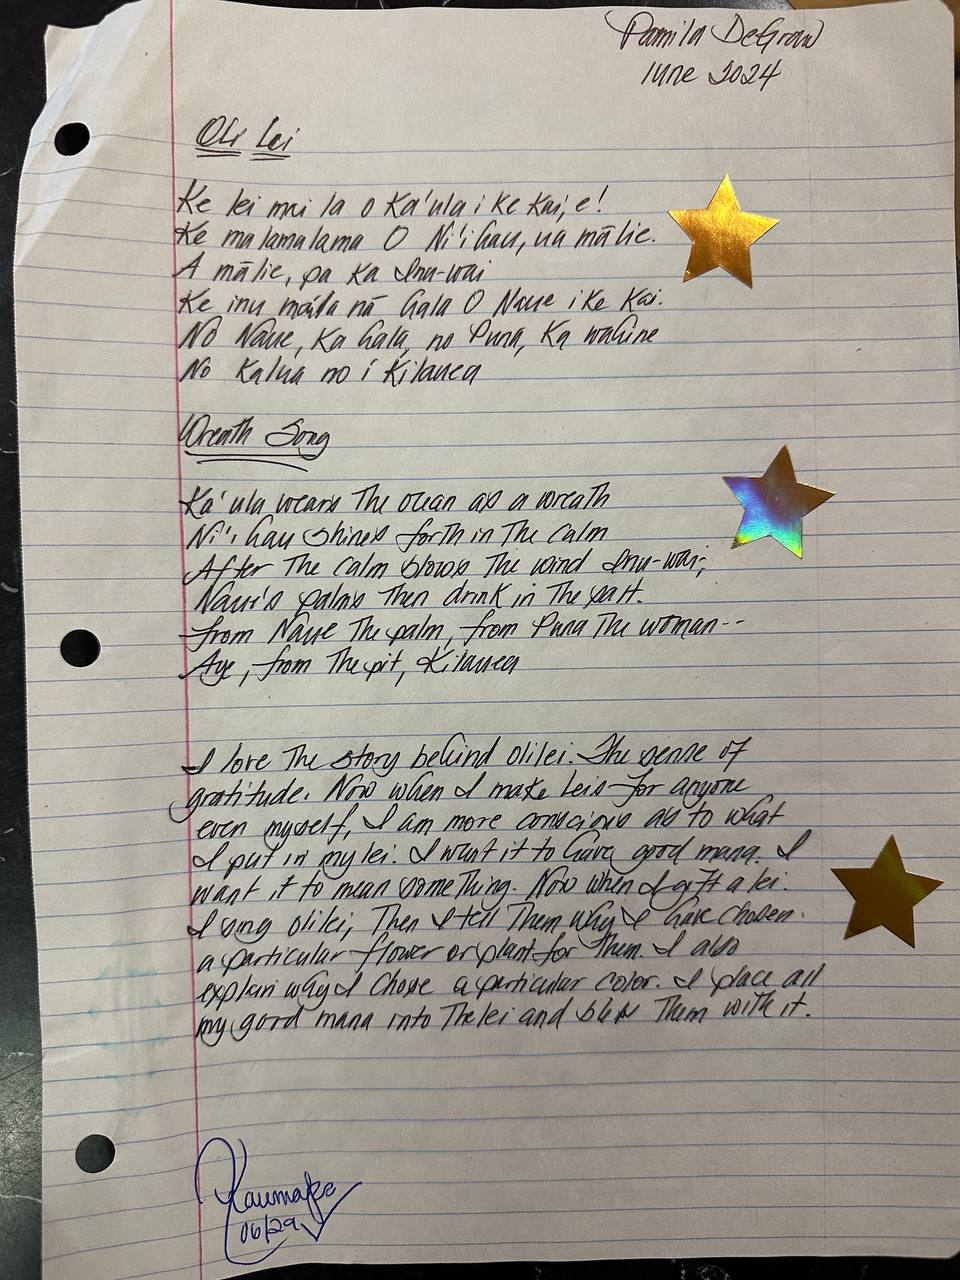 Pamila DeGraw
June 2024
Oli Lei
Ke lei mai la o Ka'ula i ke kai, e!
Ke malamalama O Ni'ihau, ua mālie.
A mālie, pa ka Inu-wai
Ke inu maila nā hala O Naue i ke kai.
No Naue, ka hala, no Puna, ka wahine
No Kalua no i Kilauea
Wreath Song
Ka'ula wears the ocean as a wreath
Ni'ihau shines forth in the calm
After the calm blows the wind Inu-wai;
Naue's palms then drink in the salt.
From Naue the palm, from Puna the woman--
Aye, from the pit, Kilauea
I love the story behind oli lei. The sense of
gratitude. Now when I make leis for anyone
even myself, I am more conscious as to what
I put in my lei. I want it to have good mana. I
want it to mean something. Now when I gift a lei.
I sing oli lei, Then I tell them why I have chosen.
a particular flower or plant for them. I also
explain why I chose a particular color. I place all
my good mana into the lei and bless them with it.
06/29